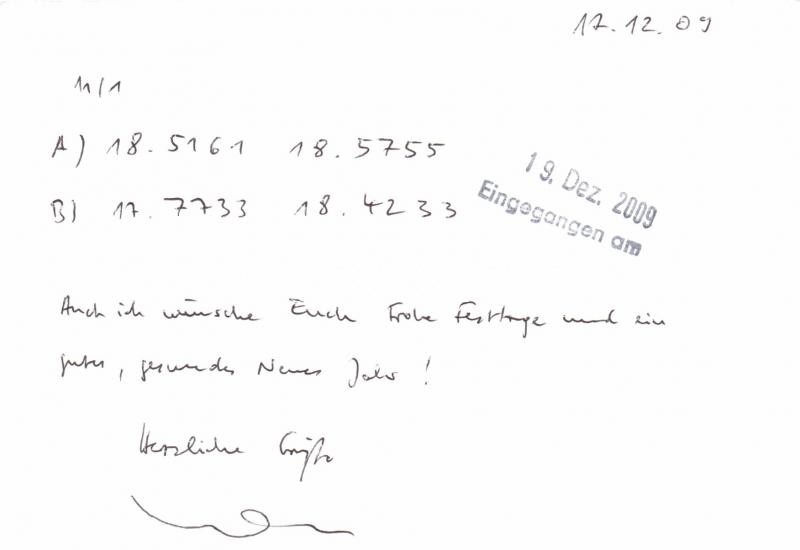 17.12.09
11/1
A) 18.5161 18.5755
B) 17.7733 18.4233
19. Dez. 2009
Eingegangen am
Auch ich wünsche Euch Frohe Festtage und ein
gutes, gesundes Neues Jahr!
Herzliche Grüße